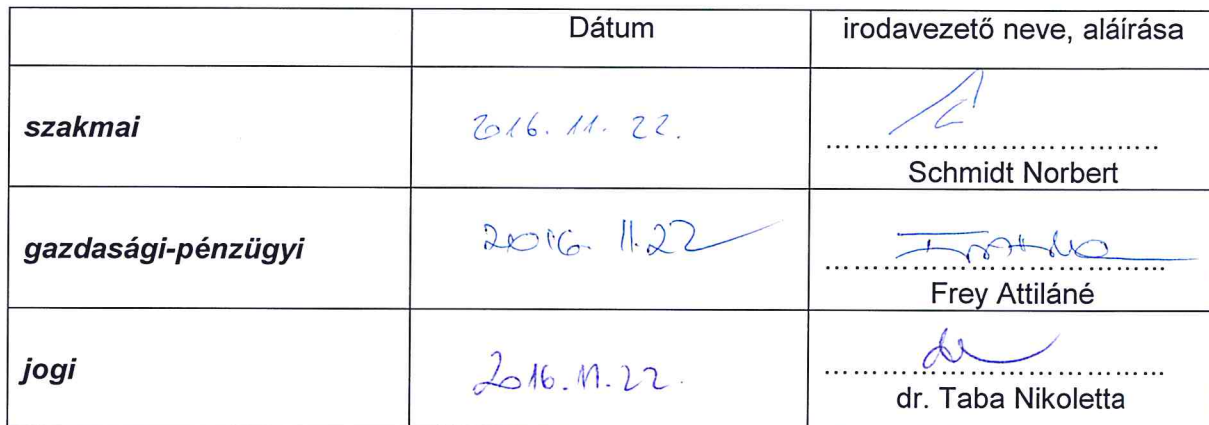 Dátum
irodavezető neve, aláírása
szakmai
2016. 11. 22.
Schmidt Norbert
gazdasági-pénzügyi
2016. 11.22
Frey Attiláné
jogi
2016.11.22.
dr. Taba Nikoletta